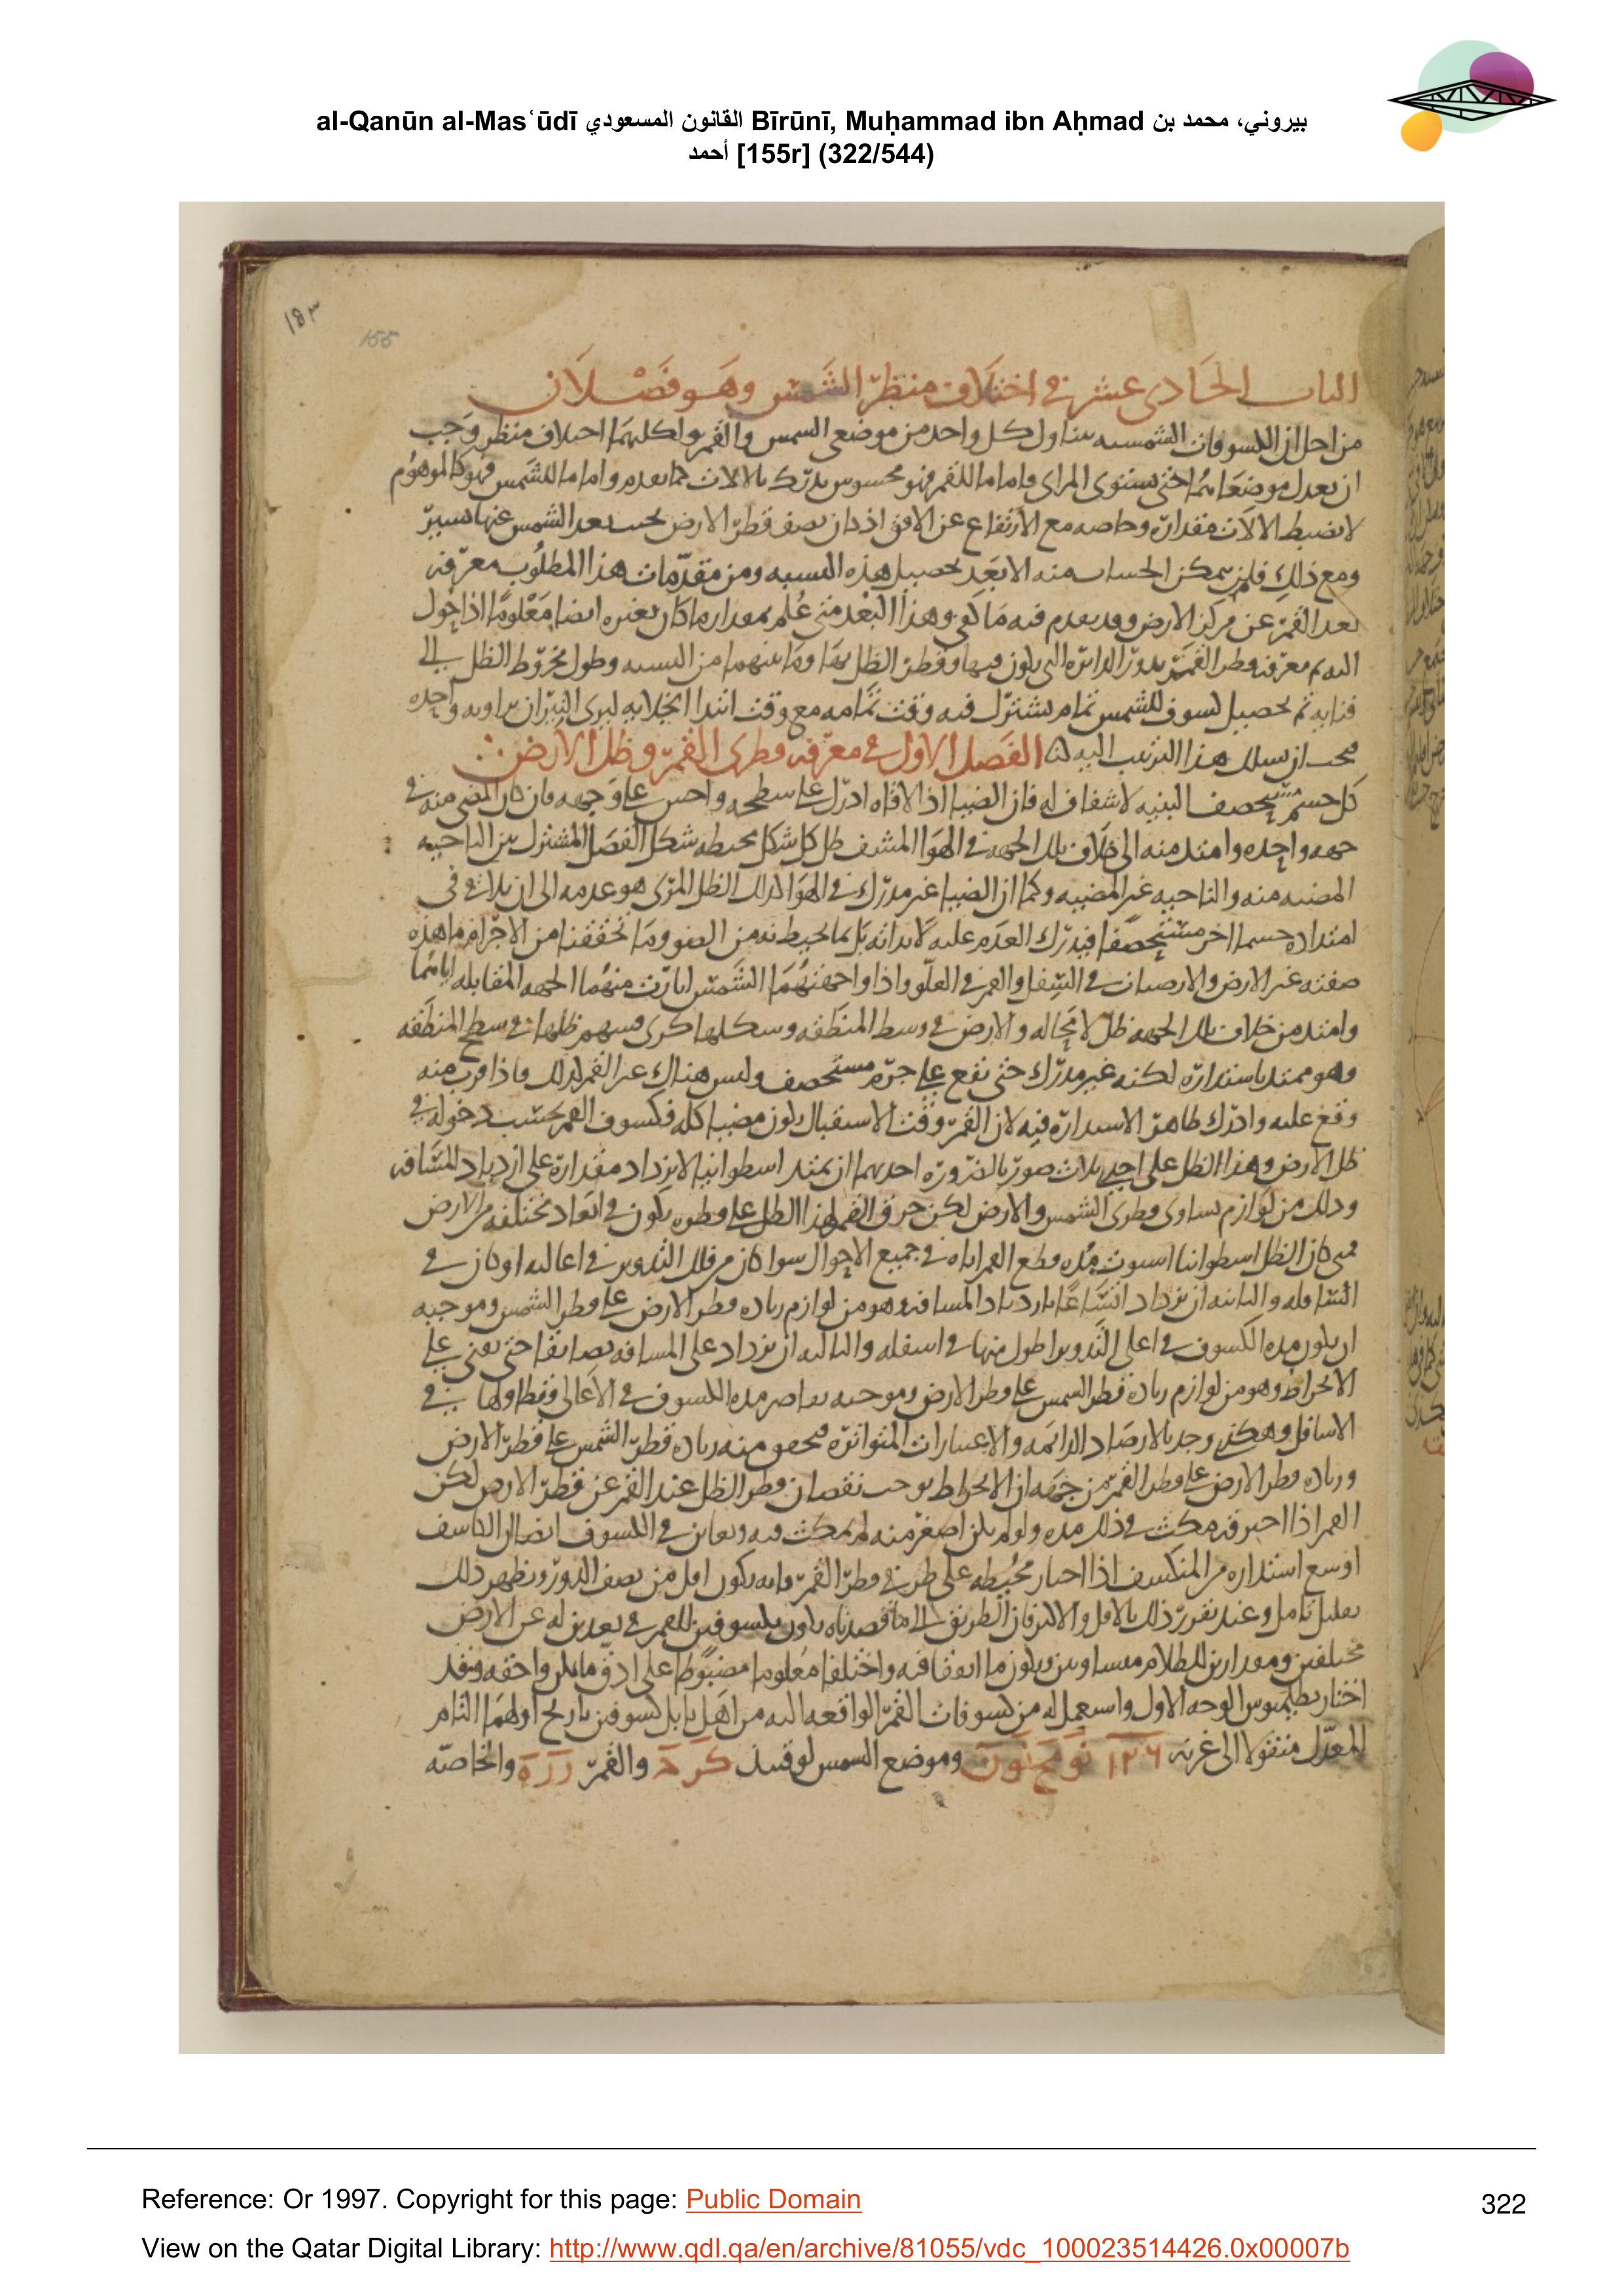 al-Qanūn al-Masʿūdī القانون المسعودي Bīrūnī, Muḥammad ibn Aḥmad بيروني، محمد بن
أحمد [155r] (322/544)
١٥٣
155
الباب الحادى عشر فى اختلاف منظر الشمس وهو فصلان
من اجل ان الكسوفات الشمسيه يتناول كل واحد من موضعى الشمس والقمر ولكليهما اختلاف منظر وجب
ان يعدل موضعاهما حتى يستوى المراى فاما ما للقمر فهو محسوس يدرك بالالات كما تقدم واما ما للشمس فهو كالموهوم
لا يضبط الالات مقداره وخاصه مع الارتفاع عن الافق اذ كان نصف قطر الارض بحسب بعد الشمس عنها يسير
ومع ذلك فلم يمكن الحساب منه الا بعد تحصيل هذه النسبه ومن مقدمات هذا المطلوب معرفه
بعد القمر عن مركز الارض وقد تقدم فيه ما كفى وهذا البعد متى علم بمقدار ما كان بغيره ايضا معلوما اذا حول
اليه ثم معرفه قطر القمر بدور الدائره التى يكون فيها وقطر الظل بها وما بينهما من النسبه وطول مخروط الظل الى
فنايه ثم تحصيل كسوف للشمس تمام يشترك فيه وقت تمامه مع وقت ابتدا انجلايه ليرى النيران بزاويه واحده
فيجب ان يسلك هذا الترتيب اليه الفصل الاول فى معرفه قطرى القمر وظل الارض
كل جسم مستحصف البنيه لا شفاف له فان الضيا اذا لاقاه ادرك على سطحه واحس على وجهه فان كان المضى منه فى
جهه واحده وامتد منه الى خلاف تلك الجهه فى الهوا المشف ظل كل شكل محيطه شكل الفصل المشترك بين الناحيه
المضيه منه والناحيه غير المضيه وكما ان الضيا غير مدرك فى الهوا كذلك الظل الذى هو عدمه الى ان يلاقى فى
امتداده جسما اخر مستحصفا فيدرك العدم عليه لا بذاته بل بما يحيط به من الضو وما تحققنا من الاجرام ما هذه
صفته غير الارض والارضيات فى السفل والقمر فى العلو واذا واجهتهما الشمس انارت منهما الجهه المقابله اياهما
وامتد من خلاف تلك الجهه ظل لا محاله والارض فى وسط المنطقه وشكلها كرى فسهم ظلها فى سطح المنطقه
وهو ممتد باستداره لكنه غير مدرك حتى يقع على جرم مستحصف وليس هناك غير القمر لذلك فاذا قرب منه
وقع عليه وادرك ظاهر الاستداره فيه لان القمر وقت الاستقبال يكون مضيا كله فكسوف القمر بحسب دخوله فى
ظل الارض وهذا الظل على احدى ثلاث صور بالضروره احديهما ان يمتد اسطوانيا لا يزداد مقداره على ازدياد المسافه
وذلك من لوازم تساوى قطرى الشمس والارض لكن خرق القمر لهذا الظل على قطره يكون فى ابعاد مختلفه من الارض
فمتى كان الظل اسطوانيا استوت مده قطع القمر اياه فى جميع الاحوال سوا كان من فلك التدوير فى اعاليه او كان فى
اسافله والثانيه ان يزداد اتساعا بازدياد المسافه وهو من لوازم زياده قطر الارض على قطر الشمس وموجبه
ان يكون مده الكسوف فى اعلى التدوير اطول منها فى اسفله والثالثه ان يزداد على المسافه تضايقا حتى يفنى على
الانخراط وهو من لوازم زياده قطر الشمس على قطر الارض وموجبه تقاصر مده الكسوف فى الاعالى وفطاولها فى
الاسافل وهكذى وجد بالارصاد الدائمه والاعتبارات المتواتره فتحقق منه زياده قطر الشمس على قطر الارض
وزياده قطر الارض على قطر القمر من جهه ان الانخراط يوجب نقصان قطر الظل عند القمر عن قطر الارض لكن
القمر اذا اجتير فيه مكث فى ذلك مده ولو لم يكن اصغر منه لم يمكث فيه ويعاين فى الكسوف ايضا ان الكاسف
اوسع استداره من المنكسف اذا اجتاز محيطه على طرفى قطر القمر فانه يكون اقل من نصف الدور ويظهر ذلك
بقليل تامل وعند تقرر ذلك بالاقل والاكثر فان الطريق الى ما قصدناه يكون بكسوفين للقمر فى بعدين له عن الارض
مختلفين ومقدارين للظلام متساويين ويكون ما اتفقا فيه واختلفا معلوما مضبوطا على ادق ما يمكن واحقه وقد
اختار بطلميوس الوجه الاول واستعمل له من كسوفات القمر الواقعه اليه من اهل بابل كسوفين تاريخ اولهما التام
المعدل منقولا الى غزنه ١٢٦ وموضع الشمس لوقتئذ والقمر والخاصه
Reference: Or 1997. Copyright for this page: Public Domain
322
View on the Qatar Digital Library: http://www.qdl.qa/en/archive/81055/vdc_100023514426.0x00007b